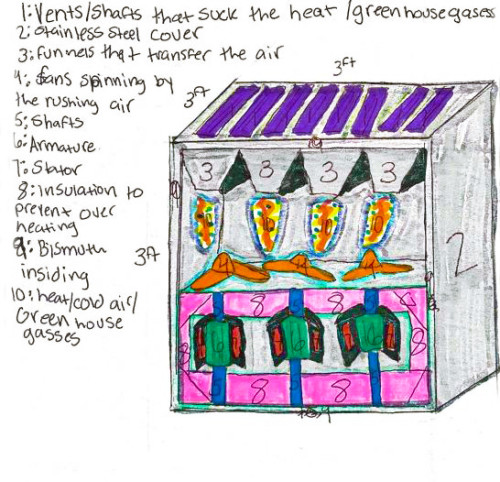 1: Vents/Shafts that suck the heat /greenhouse gases
2: stainless steel cover
3: funnels that transfer the air
4: fans spinning by
the rushing air
5: Shafts
6: Armature
7: Stator
8: insulation to
prevent over
heating
9: Bismuth
insiding
10: heat/cold air/
Green house
gasses
3ft
3ft
3ft
3 3 3 3
10 10 10
4 4 4
2
8 8 8
8
6 6 6
5
8 8